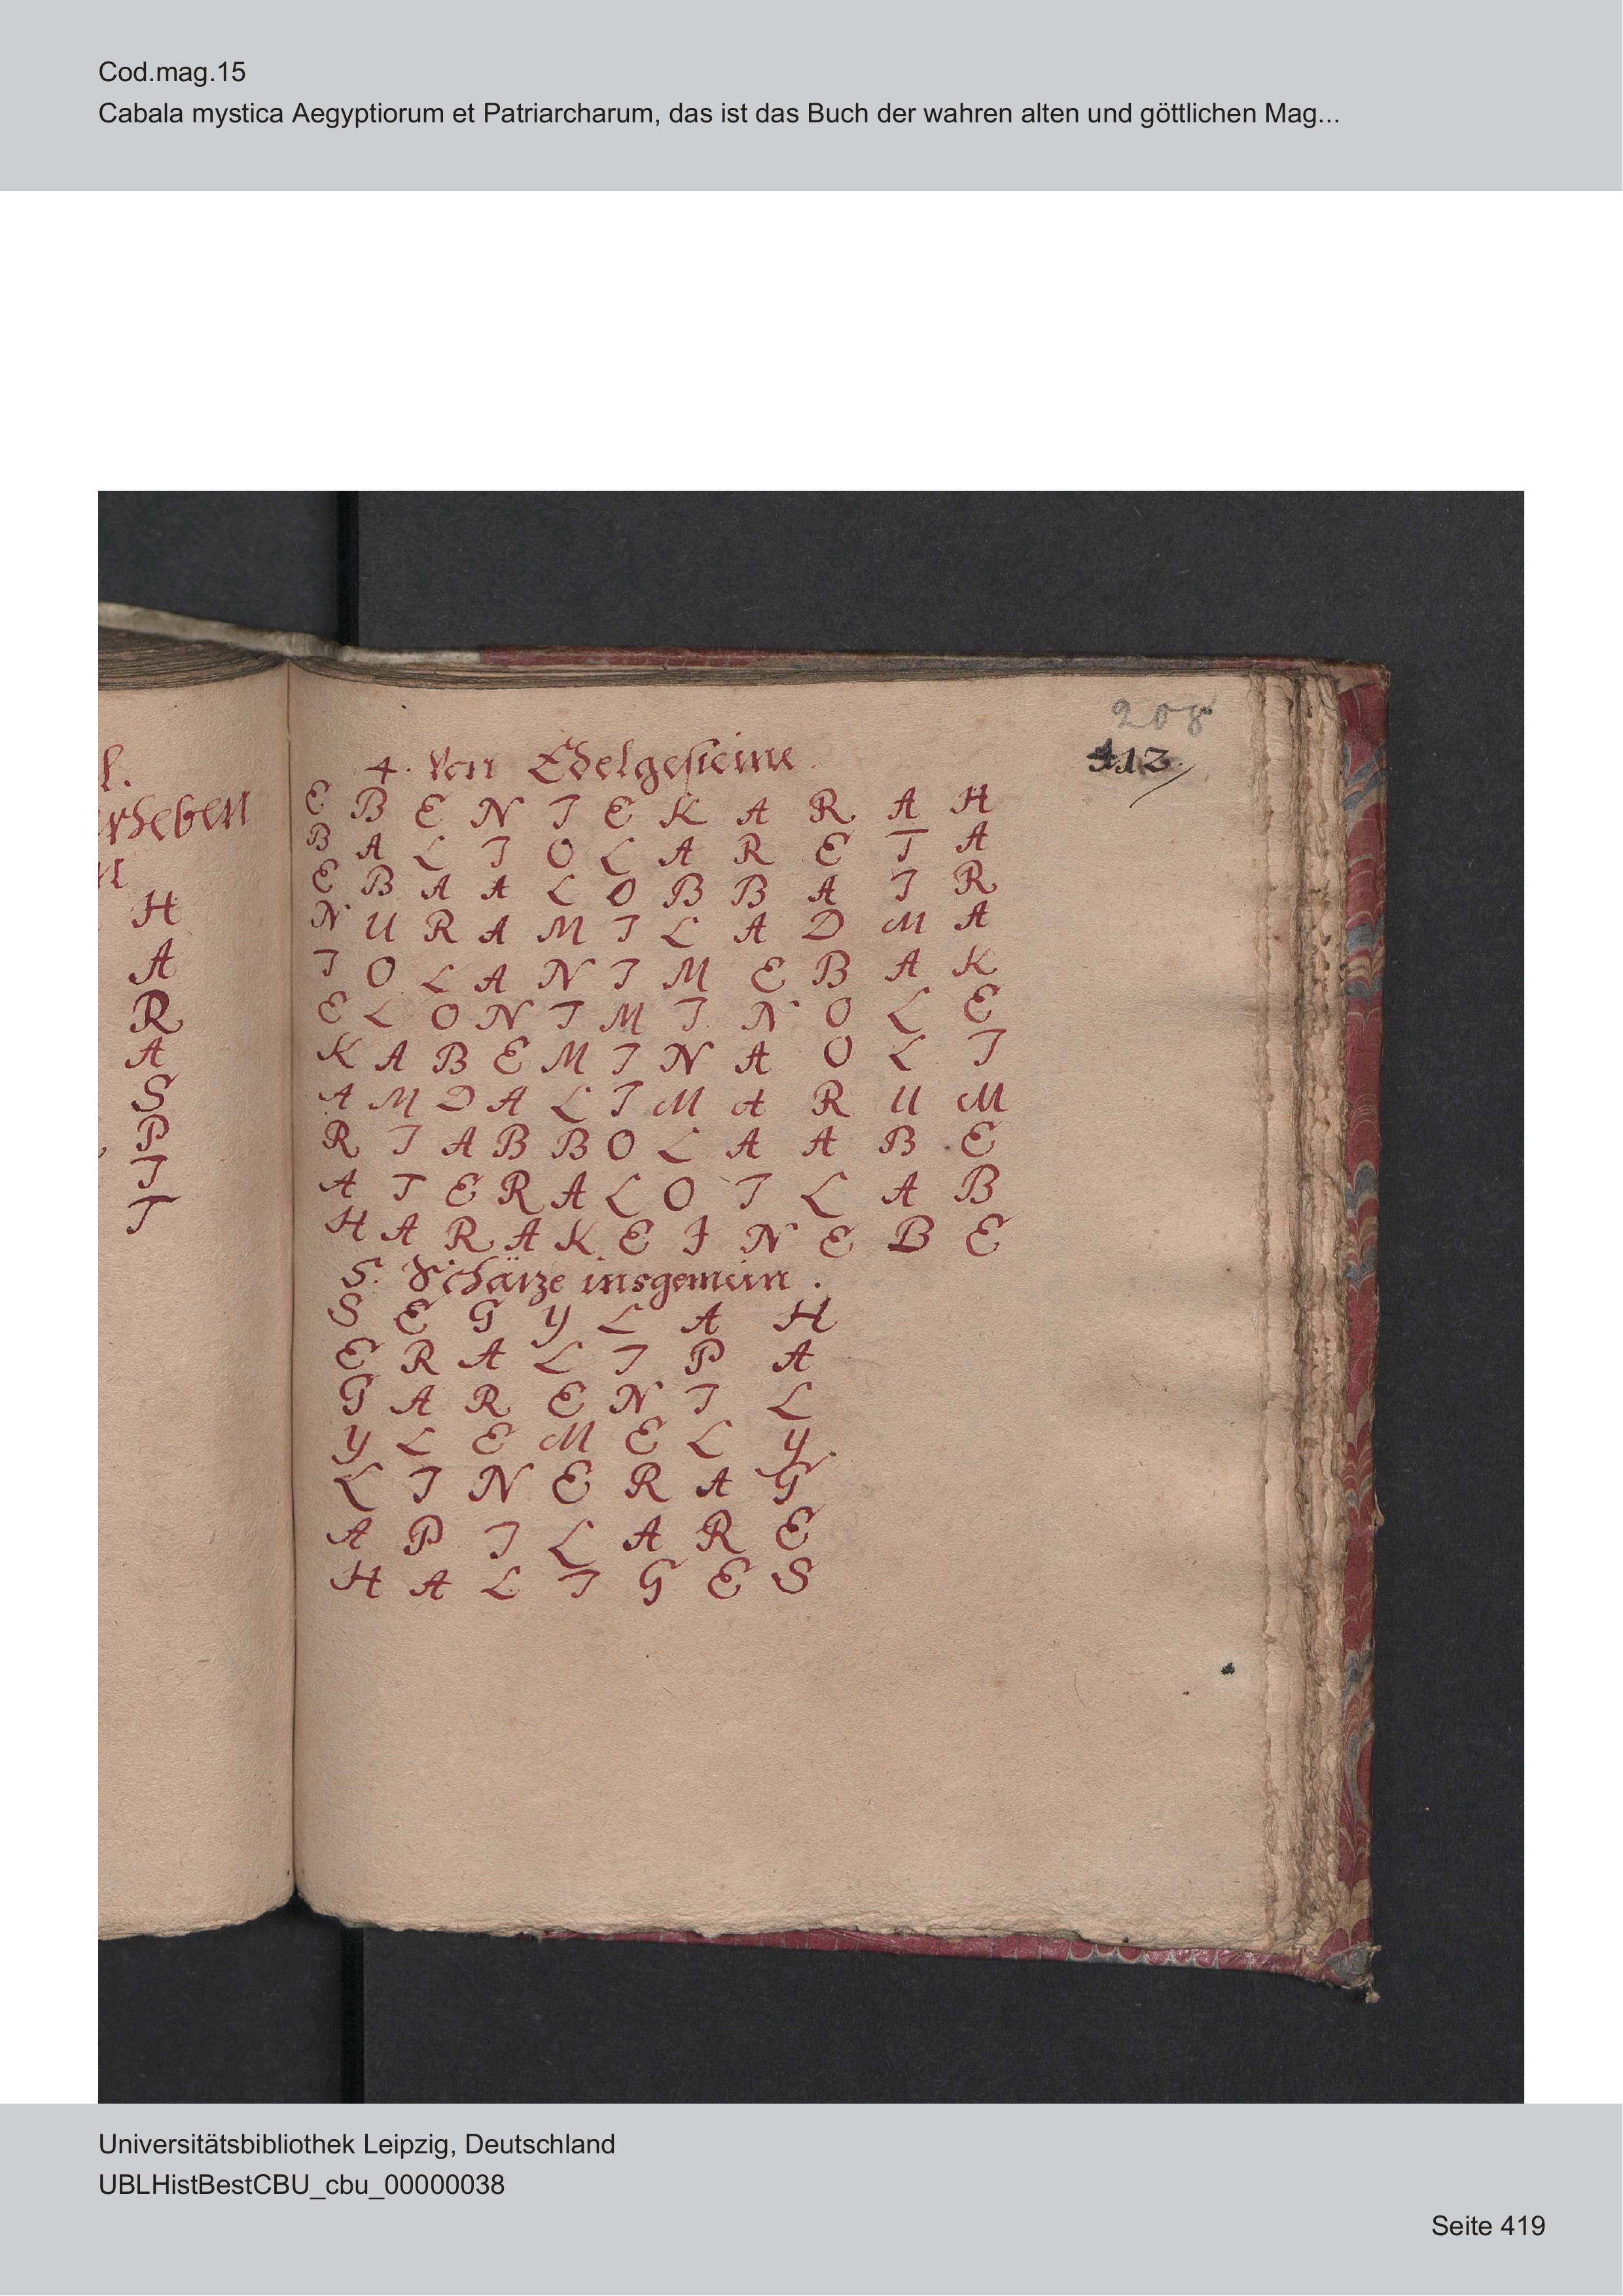 Cod.mag.15
Cabala mystica Aegyptiorum et Patriarcharum, das ist das Buch der wahren alten und göttlichen Mag...
l.
rheben
H
A
R
A
S
P
I
T
208
413
4. Von Edelgesteine
E B E N I E K A R A H
B A L I O L A R E T A
E B A A L O B B A I R
N U R A M I L A D M A
I O L A N I M E B A K
E L O N I M I N O L E
K A B E M I N A O L I
A M D A L I M A R U M
R I A B B O L A A B E
A T E R A L O I L A B
H A R A K E I N E B E
5. Schäze insgemein.
S E G Y L A H
E R A L I P A
G A R E N I L
Y L E M E L Y
L I N E R A G
A P I L A R E
H A L I G E S
Universitätsbibliothek Leipzig, Deutschland
UBLHistBestCBU_cbu_00000038
Seite 419